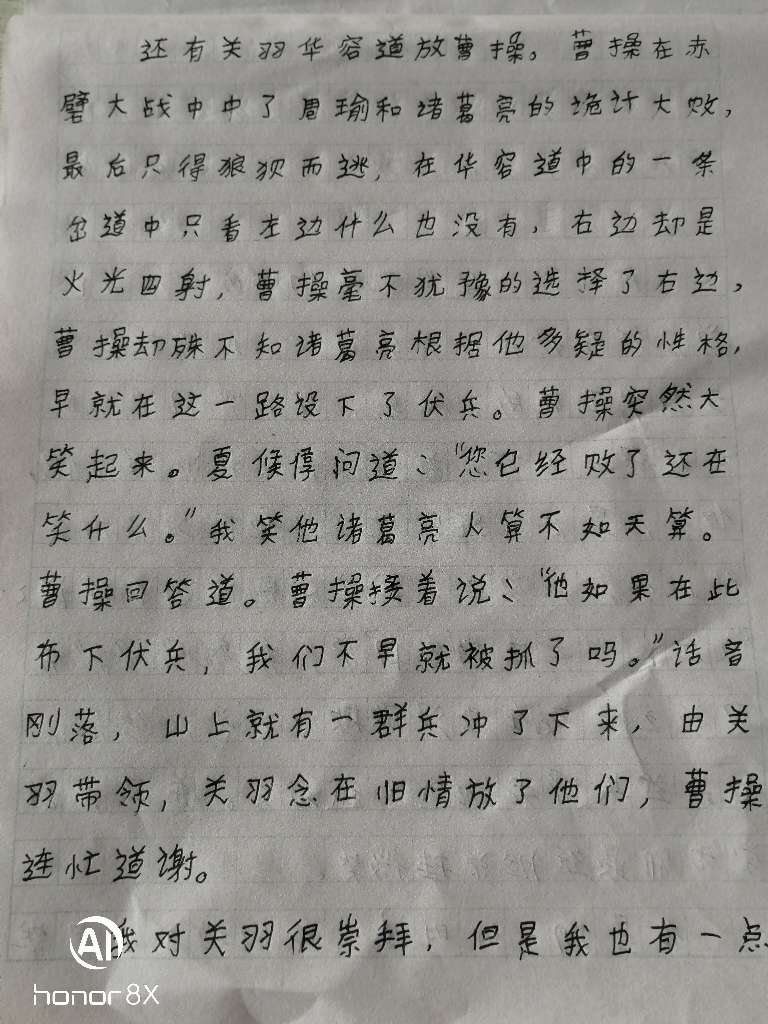 还有关羽华容道放曹操。曹操在赤
壁大战中中了周瑜和诸葛亮的诡计大败，
最后只得狼狈而逃，在华容道中的一条
岔道中只看左边什么也没有，右边却是
火光四射，曹操毫不犹豫的选择了右边，
曹操却殊不知诸葛亮根据他多疑的性格，
早就在这一路设下了伏兵。曹操突然大
笑起来。夏候惇问道：“您已经败了还在
笑什么。”我笑他诸葛亮人算不如天算。
曹操回答道。曹操接着说：“他如果在此
布下伏兵，我们不早就被抓了吗。”话音
刚落，山上就有一群兵冲了下来，由关
羽带领，关羽念在旧情放了他们，曹操
连忙道谢。
我对关羽很崇拜，但是我也有一点
AI
honor 8X